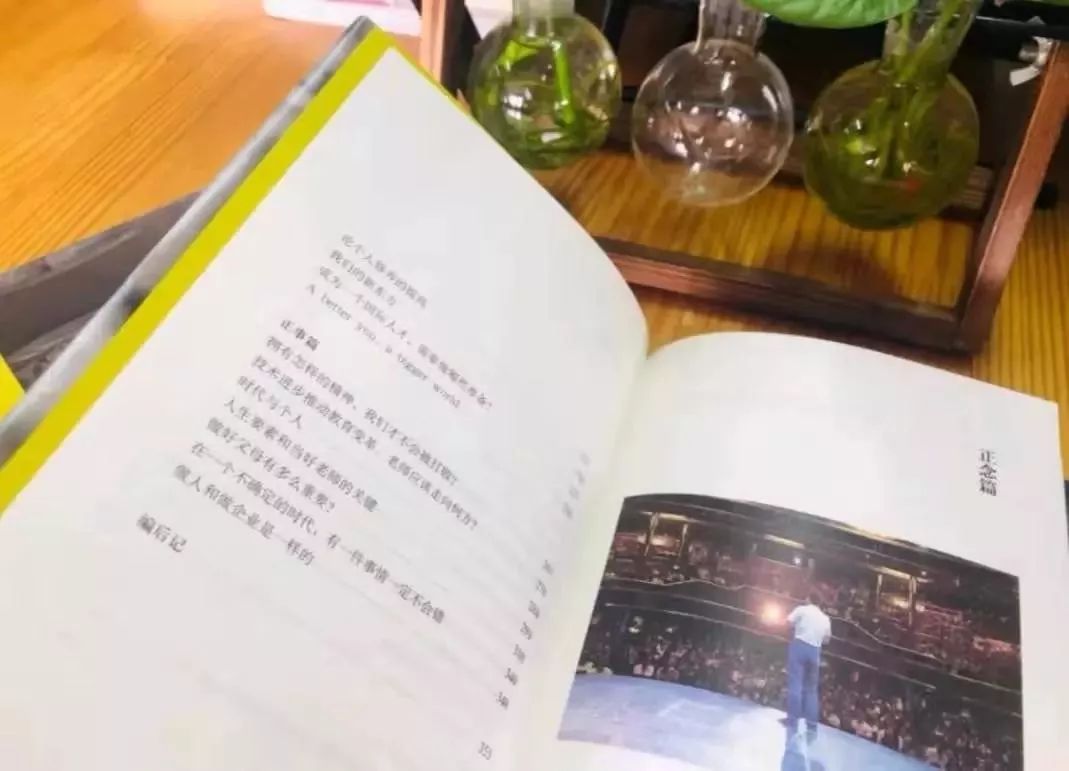 论个人修养的提高
我们的新东方
成为一个国际人才，需要做哪些准备？
A better you, a bigger world
正事篇
拥有怎样的精神，我们才不会被打败？
技术进步推动教育变革，老师应该走向何方？
时代与个人
人生要素和当好老师的关键
做好父母有多么重要？
在一个不确定的时代，有一件事情一定不会错
做人和做企业是一样的
编后记
正念篇